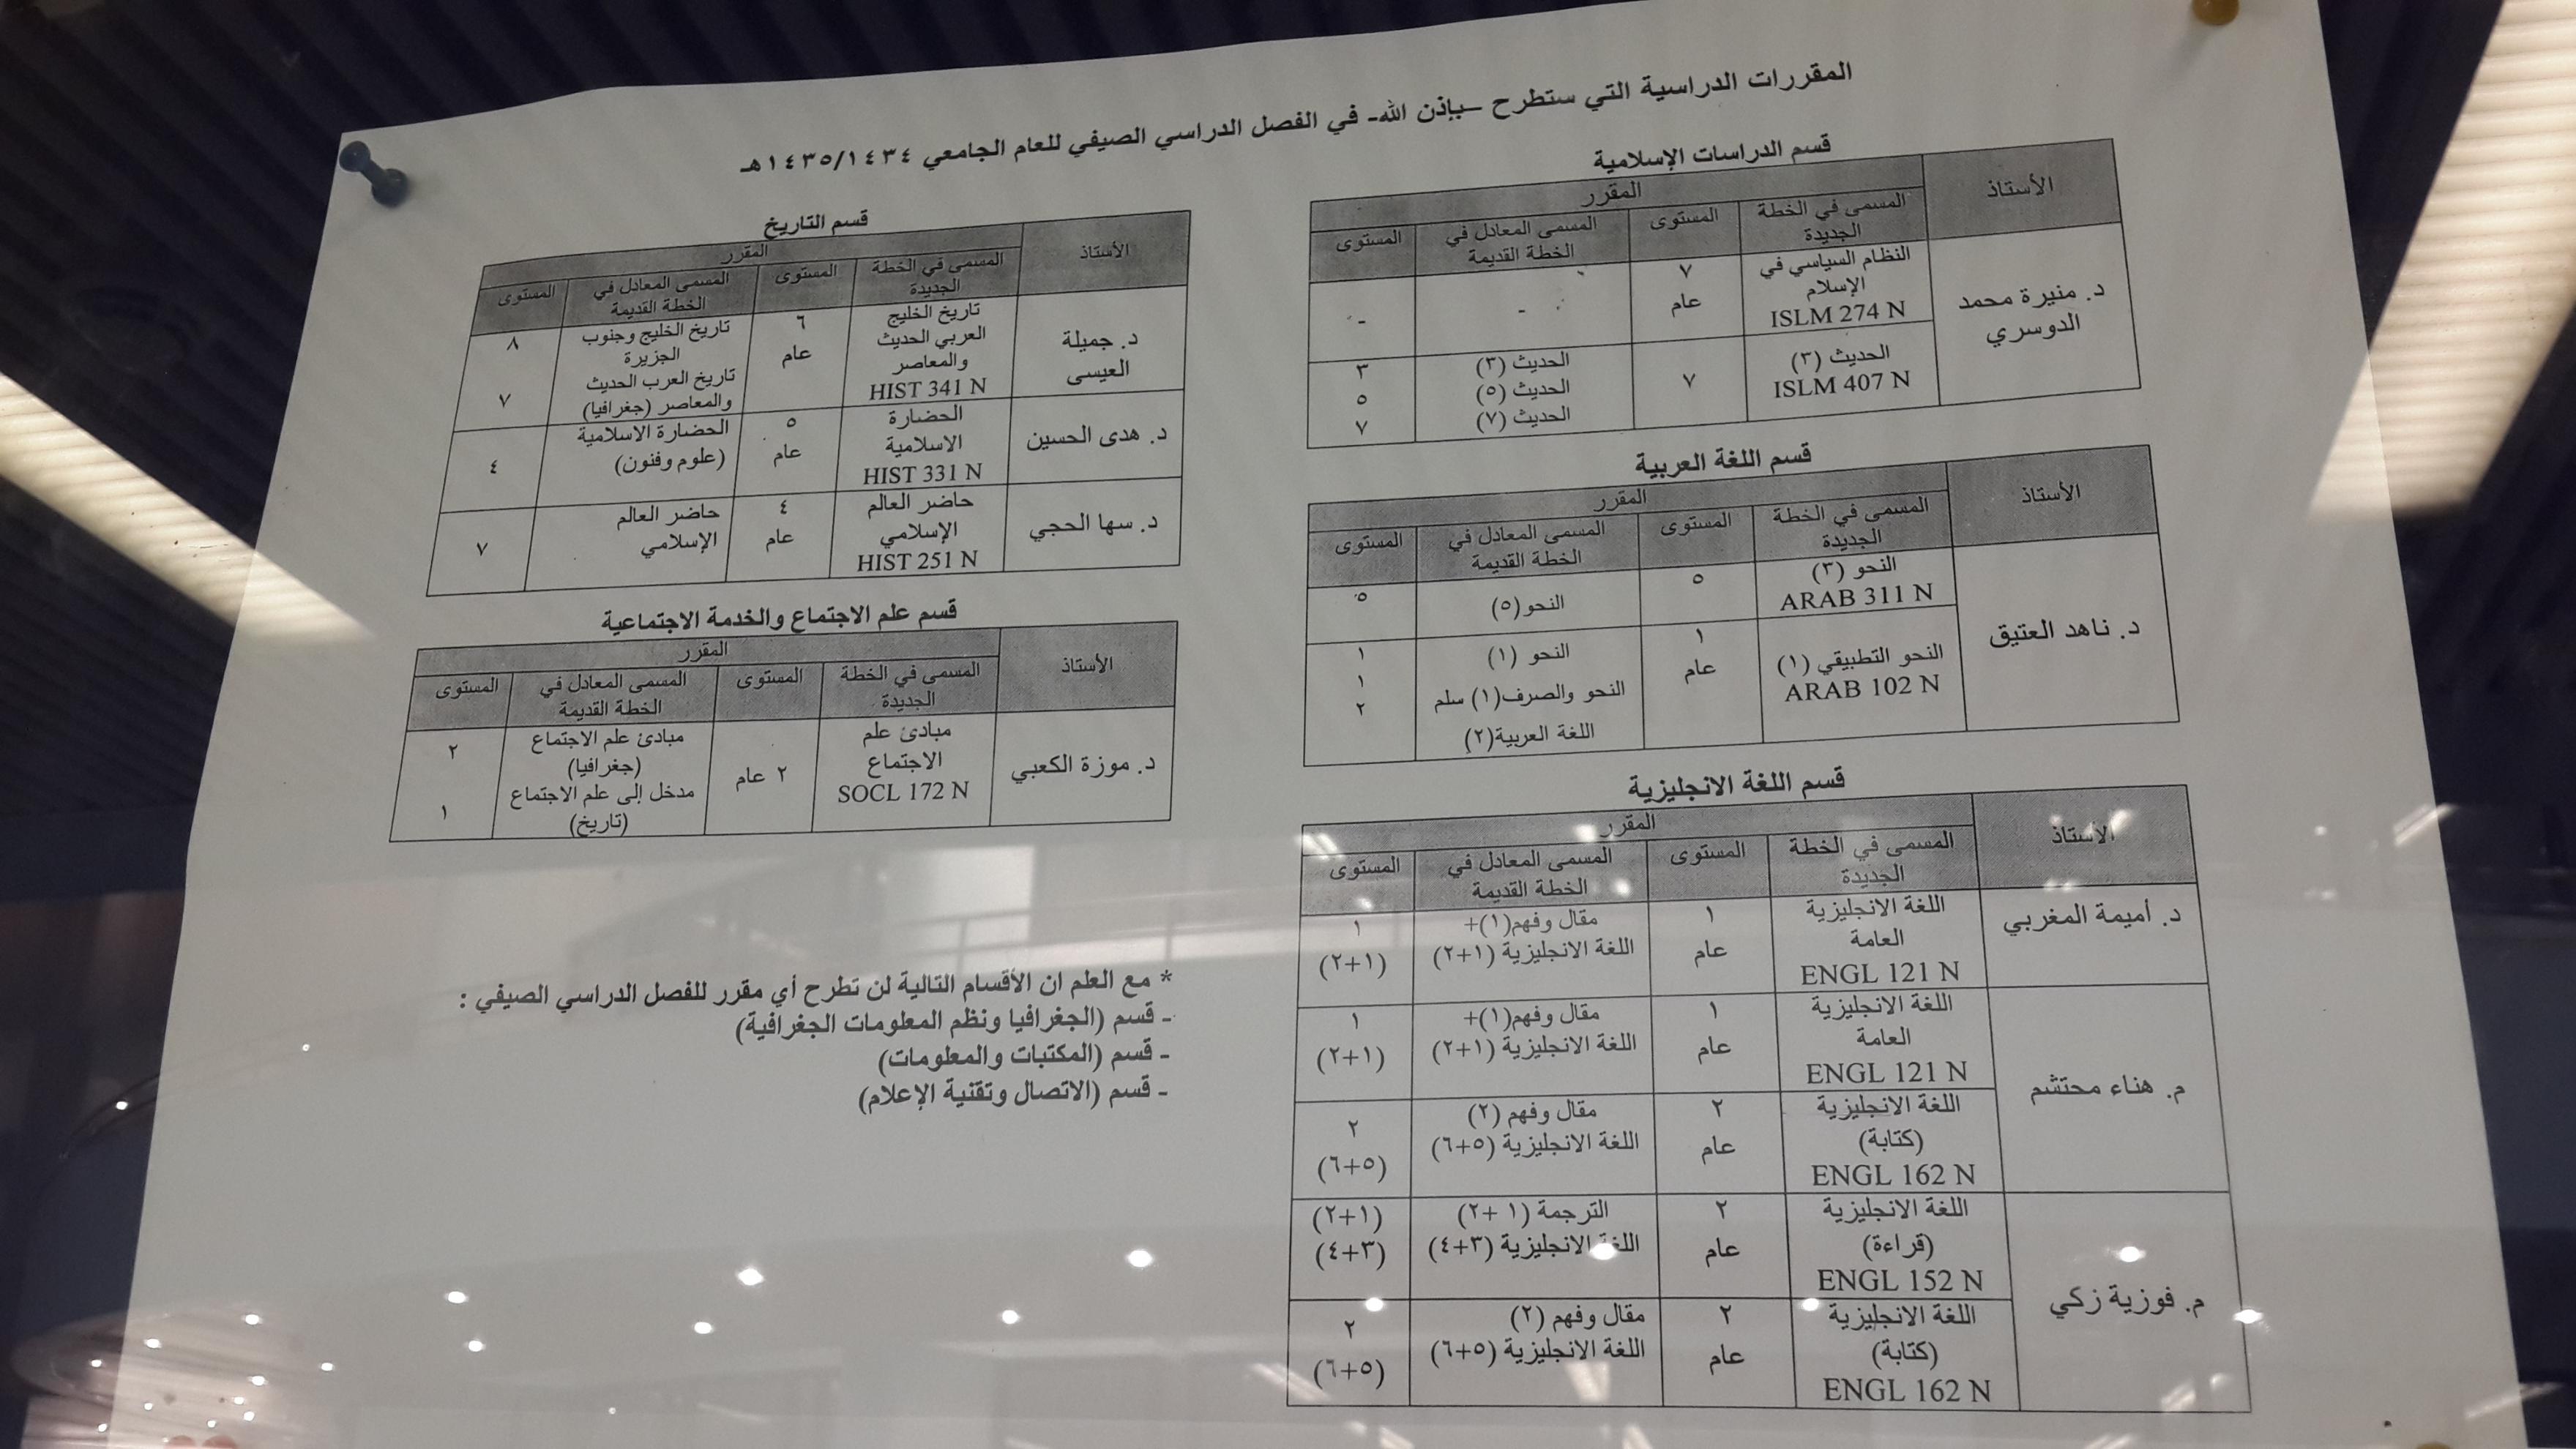 المقررات الدراسية التي ستطرح –بإذن الله- في الفصل الدراسي الصيفي للعام الجامعي ١٤٣٥/١٤٣٤هـ
قسم الدراسات الإسلامية
الأستاذ
المقرر
المسمى في الخطة
الجديدة
المستوى
المسمى المعادل في
الخطة القديمة
المستوى
د. منيرة محمد
الدوسري
النظام السياسي في
الإسلام
ISLM 274 N
٧
عام
-
-
الحديث (٣)
ISLM 407 N
٧
الحديث (٣)
الحديث (٥)
الحديث (٧)
٣
٥
٧
قسم اللغة العربية
الأستاذ
المقرر
المسمى في الخطة
الجديدة
المستوى
المسمى المعادل في
الخطة القديمة
المستوى
د. ناهد العتيق
النحو (٣)
ARAB 311 N
٥
النحو (٥)
٥
النحو التطبيقي (١)
ARAB 102 N
١
عام
النحو (١)
النحو والصرف(١) سلم
اللغة العربية(٢)
١
١
٢
قسم اللغة الانجليزية
الأستاذ
المقرر
المسمى في الخطة
الجديدة
المستوى
المسمى المعادل في
الخطة القديمة
المستوى
د. أميمة المغربي
اللغة الانجليزية
العامة
ENGL 121 N
١
عام
مقال وفهم(١)+
اللغة الانجليزية (١+٢)
١
(١+٢)
م. هناء محتشم
اللغة الانجليزية
العامة
ENGL 121 N
١
عام
مقال وفهم(١)+
اللغة الانجليزية (١+٢)
١
(١+٢)
اللغة الانجليزية
(كتابة)
ENGL 162 N
٢
عام
مقال وفهم (٢)
اللغة الانجليزية (٥+٦)
٢
(٥+٦)
م. فوزية زكي
اللغة الانجليزية
(قراءة)
ENGL 152 N
٢
عام
الترجمة (١ +٢)
اللغة الانجليزية (٣+٤)
(١+٢)
(٣+٤)
اللغة الانجليزية
(كتابة)
ENGL 162 N
٢
عام
مقال وفهم (٢)
اللغة الانجليزية (٥+٦)
٢
(٥+٦)
قسم التاريخ
الأستاذ
المقرر
المسمى في الخطة
الجديدة
المستوى
المسمى المعادل في
الخطة القديمة
المستوى
د. جميلة
العيسى
تاريخ الخليج
العربي الحديث
والمعاصر
HIST 341 N
٦
عام
تاريخ الخليج وجنوب
الجزيرة
تاريخ العرب الحديث
والمعاصر (جغرافيا)
٨
٧
د. هدى الحسين
الحضارة
الاسلامية
HIST 331 N
٥
عام
الحضارة الاسلامية
(علوم وفنون)
٤
د. سها الحجي
حاضر العالم
الإسلامي
HIST 251 N
٤
عام
حاضر العالم
الإسلامي
٧
قسم علم الاجتماع والخدمة الاجتماعية
الأستاذ
المقرر
المسمى في الخطة
الجديدة
المستوى
المسمى المعادل في
الخطة القديمة
المستوى
د. موزة الكعبي
مبادئ علم
الاجتماع
SOCL 172 N
٢ عام
مبادئ علم الاجتماع
(جغرافيا)
مدخل إلى علم الاجتماع
(تاريخ)
٢
١
* مع العلم ان الأقسام التالية لن تطرح أي مقرر للفصل الدراسي الصيفي :
- قسم (الجغرافيا ونظم المعلومات الجغرافية)
- قسم (المكتبات والمعلومات)
- قسم (الاتصال وتقنية الإعلام)